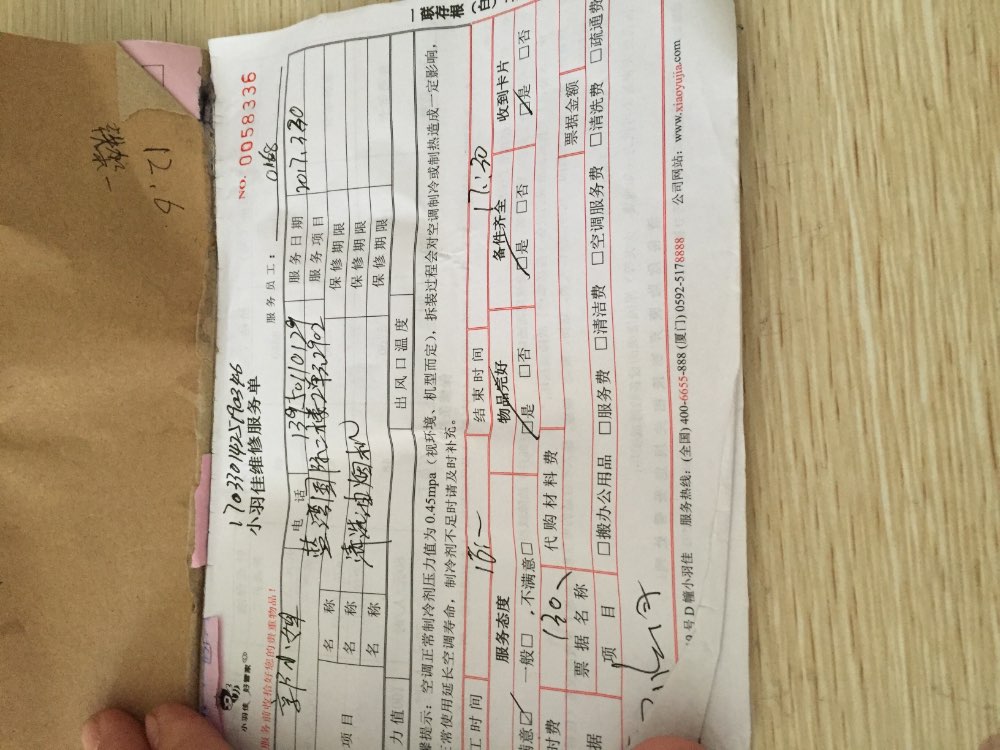 一联存根(白)
NO. 0058336
17033014425902346
小羽佳维修服务单
小羽佳 好管家
服务前收拾好您的贵重物品!
服务员工: 0168
郭小姐 电话 13950110129 服务日期 2017.3.30
蓝湾国际二楼2902 服务项目
名称 清洗油烟机 保修期限
名称 保修期限
项目 名称 保修期限
力值 出风口温度
提示:空调正常制冷剂压力值为0.45mpa(视环境、机型而定),拆装过程会对空调制冷或制热造成一定影响,
常使用延长空调寿命,制冷剂不足时请及时补充。
工时间 16:- 结束时间 17:30
服务态度 物品完好 备件齐全 收到卡片
满意☑ 一般□,不满意□ ☑是 □否 ☑是 □否 ☑是 □否
时费 130 代购材料费
据 票据名称 票据金额
项目 □搬办公用品 □服务费 □清洁费 □空调服务费 □清洗费 □疏通费
9号D幢小羽佳 服务热线:(全国) 400-6655-888 (厦门) 0592-5178888 公司网站:www.xiaoyujia.com
12.6